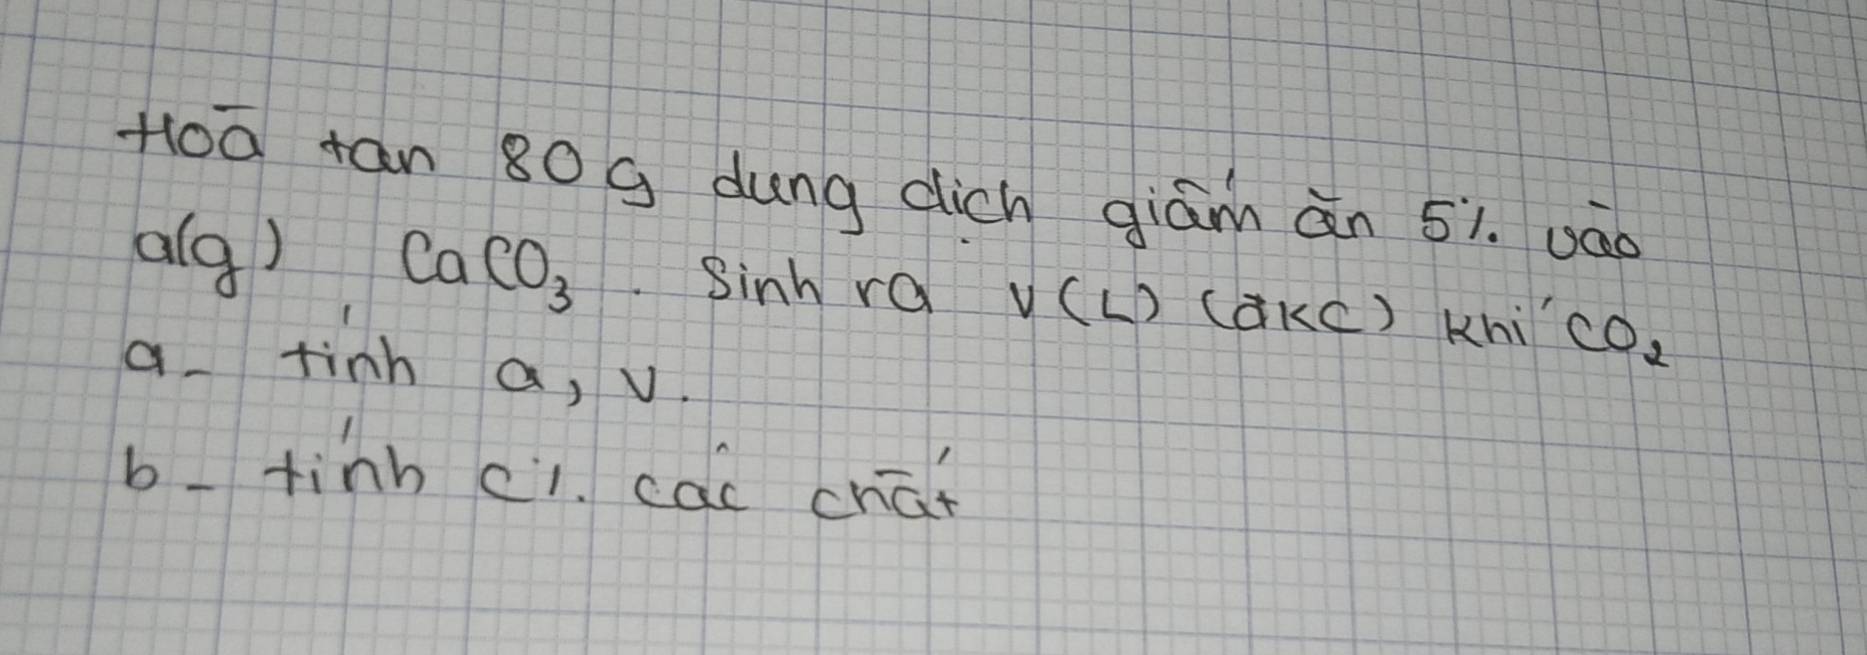 Hoā tan 80g dung dịch giấm ăn 5% vào
a(g) CaCO₃. Sinh ra V(L) (đkc) khí CO₂
a- tính a, V.
b- tính C%. các chất